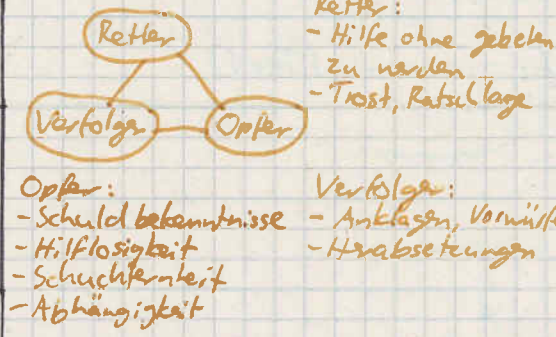 Retter
Verfolger
Opfer
Retter:
- Hilfe ohne gebeten
zu werden
- Trost, Ratschläge
Opfer:
- Schuldbekenntnisse
- Hilflosigkeit
- Schüchternheit
- Abhängigkeit
Verfolger:
- Anklagen, Vorwürfe
- Herabsetzungen